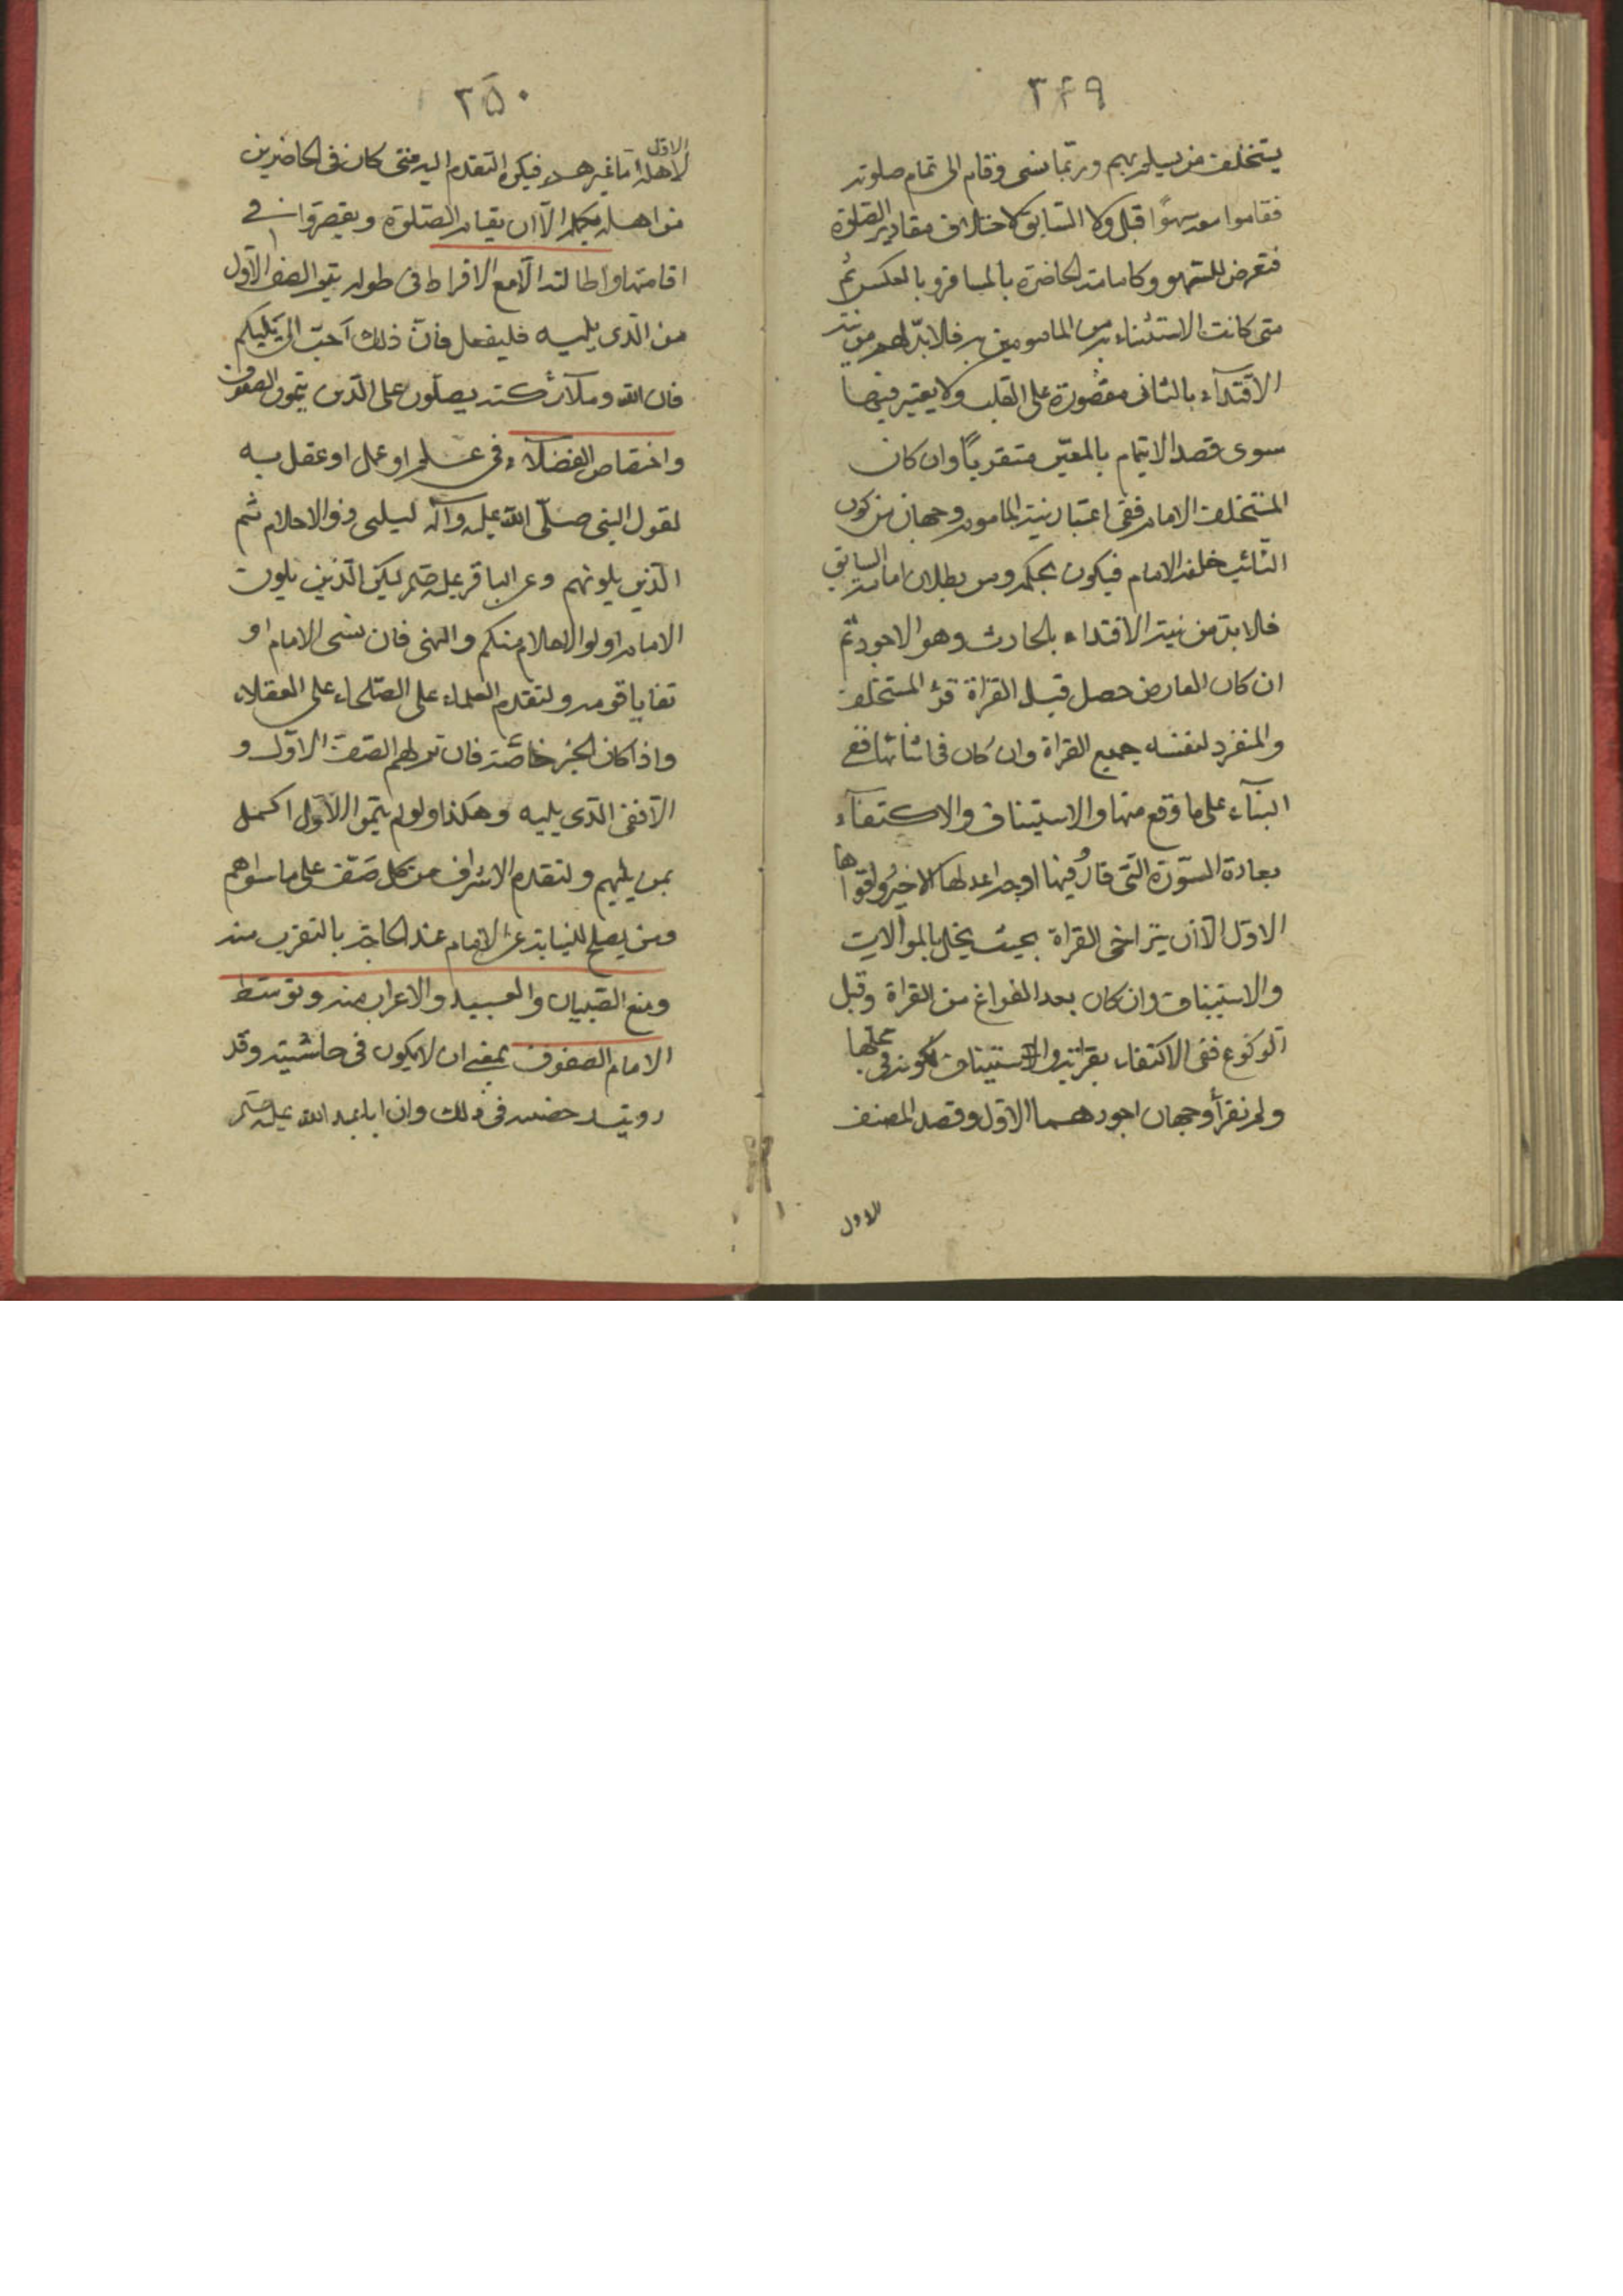 ٢٤٩
يستخلف من يسلم بهم وربما نسى وقام الى تمام صلوته
فقاموا معه سهوًا قبل وكا السابق كاختلاف مقادير الصلوة
فتعرض للسهو وكامامته الحاضرة بالمسافر وبالعكس ثم
متى كانت الاستنابة من المامومين فلابد لهم من نية
الاقتدآء بالثانى مقصورة على القلب ولا يعتبر فيها
سوى قصد الايتمام بالمعين متقربًا وان كان
المستخلف الامام ففى اعتبار نية الماموم وجهان من كون
النائب خليفة الامام فيكون بحكمه ومن بطلان امامة السابق
فلابد من نية الاقتداء بالحادث وهو الاجود ثم
ان كان العارض حصل قبل القراة قرأ المستخلف
والمنفرد لنفسه جميع القراة وان كان فى اثنائها ففى
البنآء على ما وقع منها والاستيناف والاكتفآء
بعادة السورة التى فارق فيها اوجه اعدلها الاخير واقواها
الاول الا ان يتراخى القراة بحيث يخل بالموالات
والاستيناف وان كان بعد الفراغ من القراة وقبل
الركوع ففى الاكتفاء بقرائته والاستيناف لكونه فى محلها
ولم نقرأ وجهان اجودهما الاول وقصد المصنف
الاول
٢٥٠
الاول
لاهله اما غيرهم فيكره التقدم اليه متى كان فى الحاضرين
من اهله بكماله الا ان يقام الصلوة ويقصروا فى
اقامتها واطالته الا مع الافراط فى طوله يتم الصف الاول
من الذى يليه فليفعل فان ذلك احب الى يليكم
فان الله وملآئكته يصلون على الذين يتمون الصفوف
واختصاص الفضلاء فى علم او عمل او عقل به
لقول النبى صلى الله عليه وآله ليلنى ذوو الاحلام ثم
الذين يلونهم وعن الباقر عليه السلام ليكن الذين يلون
الامام اولوا الاحلام منكم والنهى فان نسى الامام او
تعايا قوموه ولتقدم العلماء على الصلحاء على العقلاء
واذا كان الخبر خاصة فان تم لهم الصف الاول و
الا ففى الذى يليه وهكذا ولو لم يتموا الاول اكمل
بمن يليهم ولتقدم الاشراف من كل صف على ما سواهم
ومن يصلح للنيابة عن الامام عند الحاجة بالتقرب منه
ومنع الصبيان والعبيد والاعراب منه وتوسط
الامام الصفوف بمعنى ان لا يكون فى حاشيته وقد
رويت رخصة فى ذلك وان ابا عبد الله عليه السلام